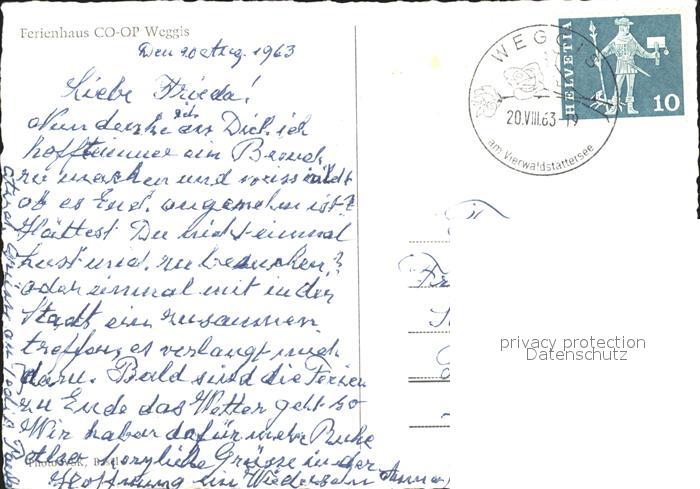 Ferienhaus CO-OP Weggis
Den 20 Aug. 1963
Liebe Frieda!
Nun denke ich an Dich, ich
hoffte immer ein Besuch
zu machen und weiss nicht
ob es Euch angenehm ist?
Hättest Du nicht einmal
Lust uns zu besuchen?
oder einmal mit in der
Stadt ein zusammen
treffen, es verlangt mich
dazu. Bald sind die Ferien
zu Ende das Wetter geht so
Wir haben dafür mehr Ruhe
Also herzliche Grüsse in der
Hoffnung ein Wiedersehn Anna
WEGGIS
20.VIII.63-19
am Vierwaldstättersee
HELVETIA
10
privacy protection
Datenschutz